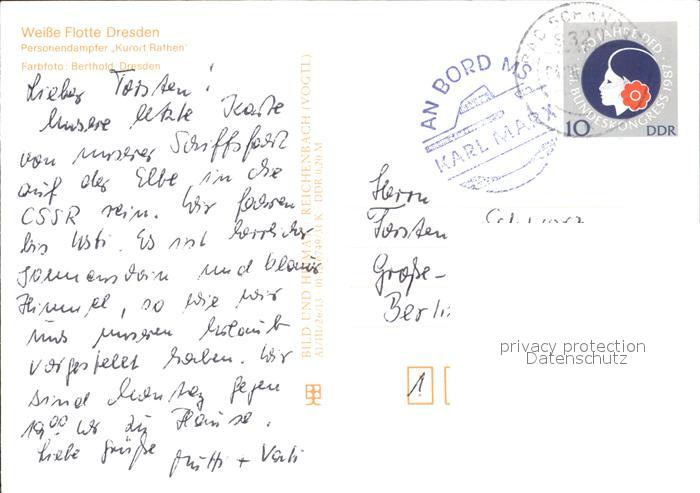 Weiße Flotte Dresden
Personendampfer „Kurort Rathen"
Farbfoto: Berthold, Dresden
Lieber Torsten!
Unsere letzte Karte
von unserer Schiffsfahrt
auf der Elbe in die
CSSR sein. Wir fahren
bis Usti. Es ist herrlicher
Sonnenschein und blauer
Himmel, so wie wir
uns unseren Urlaub
vorgestellt haben. Wir
sind Montag gegen
19.00 Uhr zu Hause.
Liebe Grüße Mutti + Vati
BILD UND HEIMAT REICHENBACH (VOGTL)
A1/III/26/13 K DDR 0,20 M
AN BORD MS
KARL MARX
BAD SCHANDAU
JAHRE DFD
BUNDESKONGRESS 1987
10 DDR
Herrn
Torsten
Große-
Berli
1
privacy protection
Datenschutz